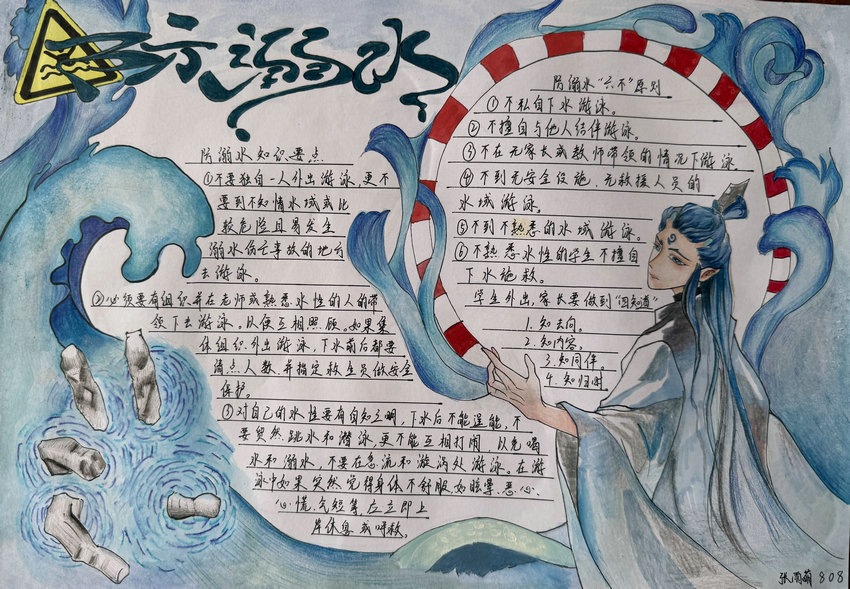 防溺水
防溺水知识要点
①不要独自一人外出游泳，更不
要到不知情水域或比
较危险且易发生
溺水伤亡事故的地方
去游泳。
②必须要有组织并在老师或熟悉水性的人的带
领下去游泳。以便互相照顾。如果集
体组织外出游泳，下水前后都要
清点人数并指定救生员做安全
保护。
③对自己的水性要有自知之明，下水后不能逞能，不
要贸然跳水和潜泳，更不能互相打闹，以免喝
水和溺水，不要在急流和漩涡处游泳。在游
泳中如果突然觉得身体不舒服，如眩晕、恶心、
心慌、气短等，应立即上
岸休息或呼救。
防溺水“六不”原则
①不私自下水游泳。
②不擅自与他人结伴游泳。
③不在无家长或教师带领的情况下游泳。
④不到无安全设施、无救援人员的
水域游泳。
⑤不到不熟悉的水域游泳。
⑥不熟悉水性的学生不擅自
下水施救。
学生外出，家长要做到“四知道”
1.知去向。
2.知内容。
3.知同伴。
4.知归时
张雨萌 808